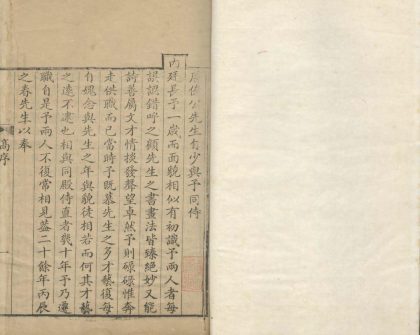 唐偉公先生自少與予同侍
内廷長予一歲而面貌相似有初識予兩人者每
誤認錯呼之顧先生之書畫法皆臻絶妙又能
詩善屬文才情掞發聲望卓然予則碌碌惟奔
走供職而已當時予既慕先生之多才藝復每
自媿念與先生之年與貌徒相若而何其才藝
之遠不逮也相與同殿侍直者幾十年予乃遷
職自是予兩人不復常相見蓋二十餘年丙辰
之春先生以奉
高序
一